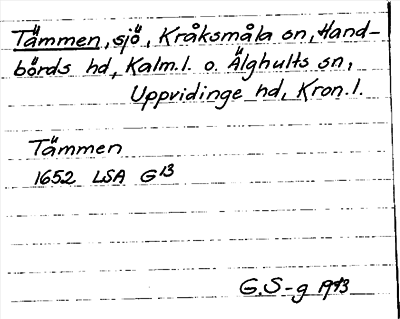 Tämmen, sjö, Kråksmåla sn, Hand-
börds hd, Kalm.l. o. Älghults sn,
Uppvidinge hd, Kron.l.
Tämmen
1652 LSA G13
G.S-g 1973